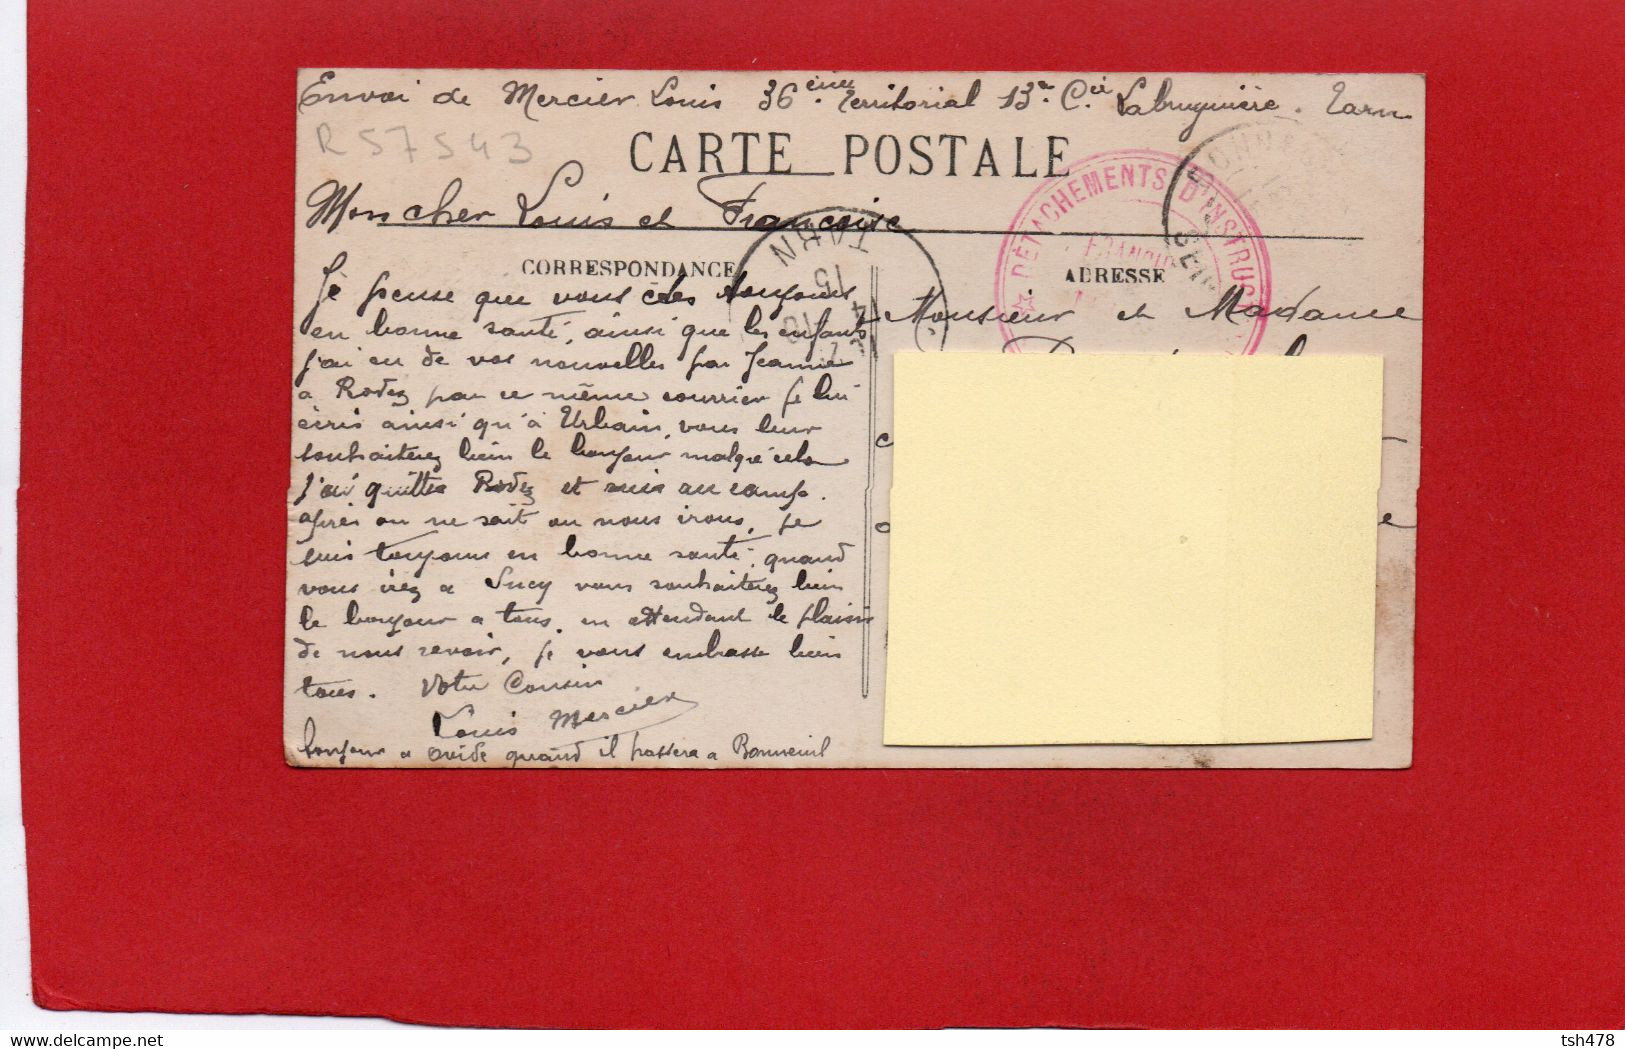 Envoi de Mercier Louis 36ème Territorial 13e Cie Labruguière. Tarn
R 57543
CARTE POSTALE
DÉTACHEMENTS D'INSTRUC
Mon cher Louis et Françoise
TARN
15
CORRESPONDANCE
ADRESSE
Je pense que vous êtes toujours
en bonne santé, ainsi que les enfants
j'ai eu de vos nouvelles par Jeanne
a Rodez par ce même courrier je lui
écris ainsi qu'à Urbain, vous leur
souhaiterez bien le bonjour malgré cela
j'ai quitté Rodez et suis au camp.
après on ne sait ou nous irons, je
suis toujours en bonne santé. quand
vous irez a Sucy vous souhaiterez bien
le bonjour a tous. en attendant le plaisir
de nous revoir, je vous embrasse bien
tous. Votre Cousin
Louis Mercier
bonjour a ovide quand il passera a Bonneuil
Monsieur et Madame
delcampe.net
tsh478